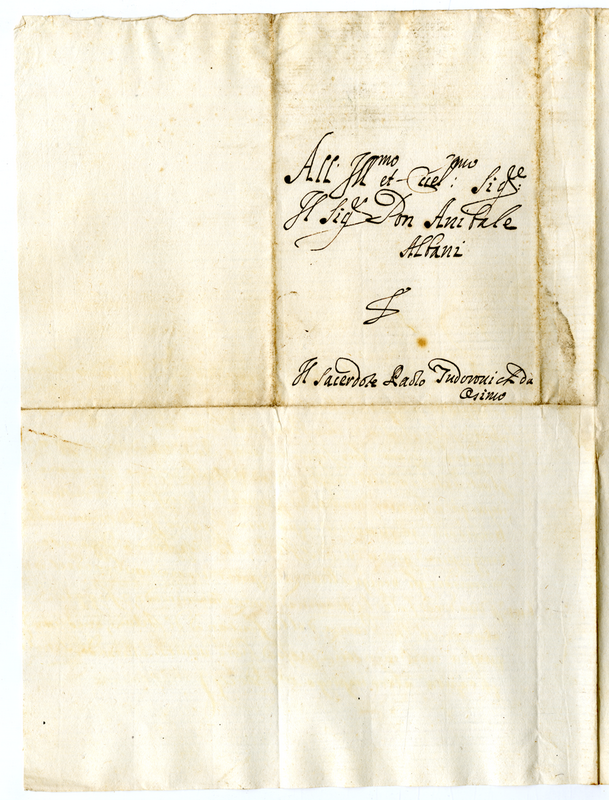 All' Ill.mo et Ecel:mo Sig.re:
Il Sig.r Don Anibale
Albani
Il Sacerdote Paolo da
Osimo